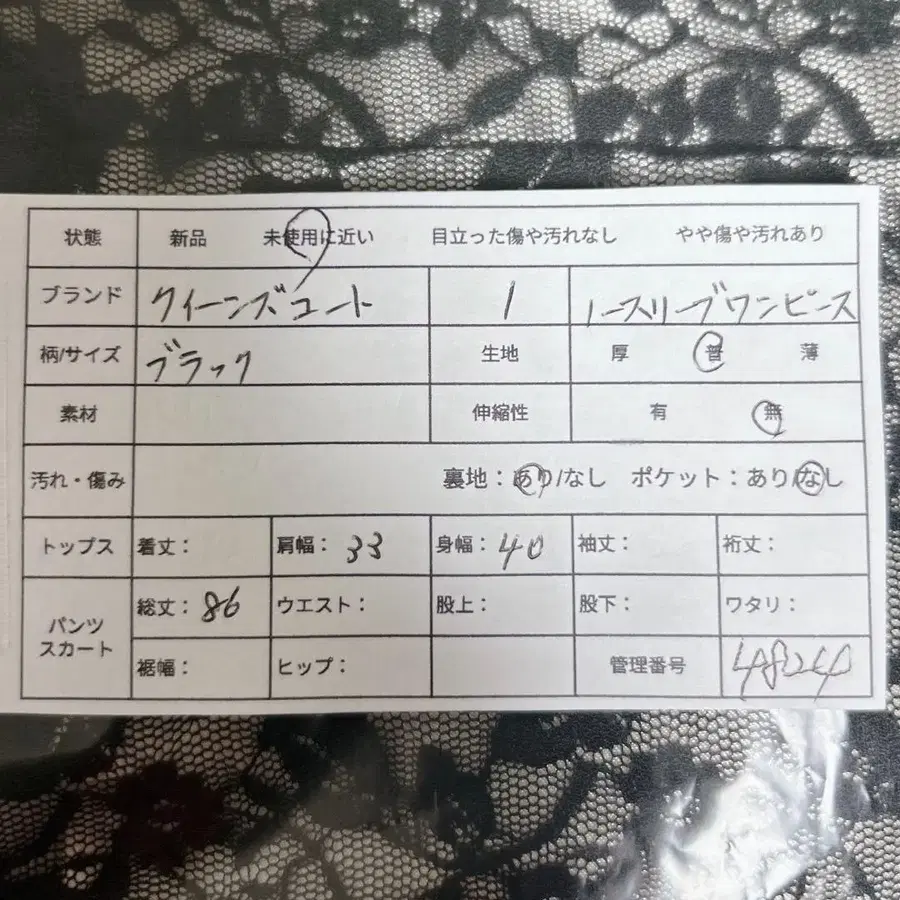 状態 新品 未使用に近い 目立った傷や汚れなし やや傷や汚れあり
ブランド クイーンズコート 1 ノースリーブワンピース
柄/サイズ ブラック 生地 厚 普 薄
素材 伸縮性 有 無
汚れ・傷み 裏地：あり/なし ポケット：あり/なし
トップス 着丈： 肩幅：33 身幅：40 袖丈： 裄丈：
パンツ
スカート
総丈：86 ウエスト： 股上： 股下： ワタリ：
裾幅： ヒップ： 管理番号 4824